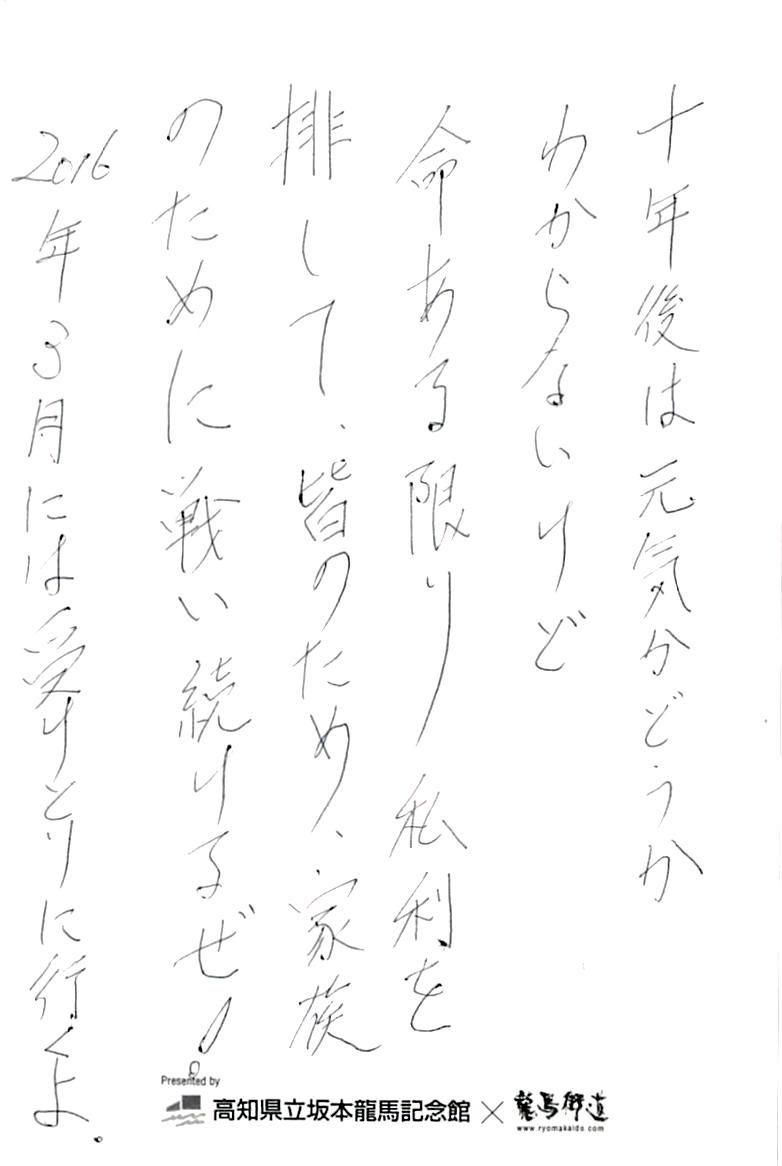 十年後は元気かどうか
わからないけど
命ある限り私利を
排して、皆のため、家族
のために戦い続けるぜ!
2016年3月には受けとりに行くよ。
Presented by
高知県立坂本龍馬記念館×龍馬街道
www.ryomakaido.com